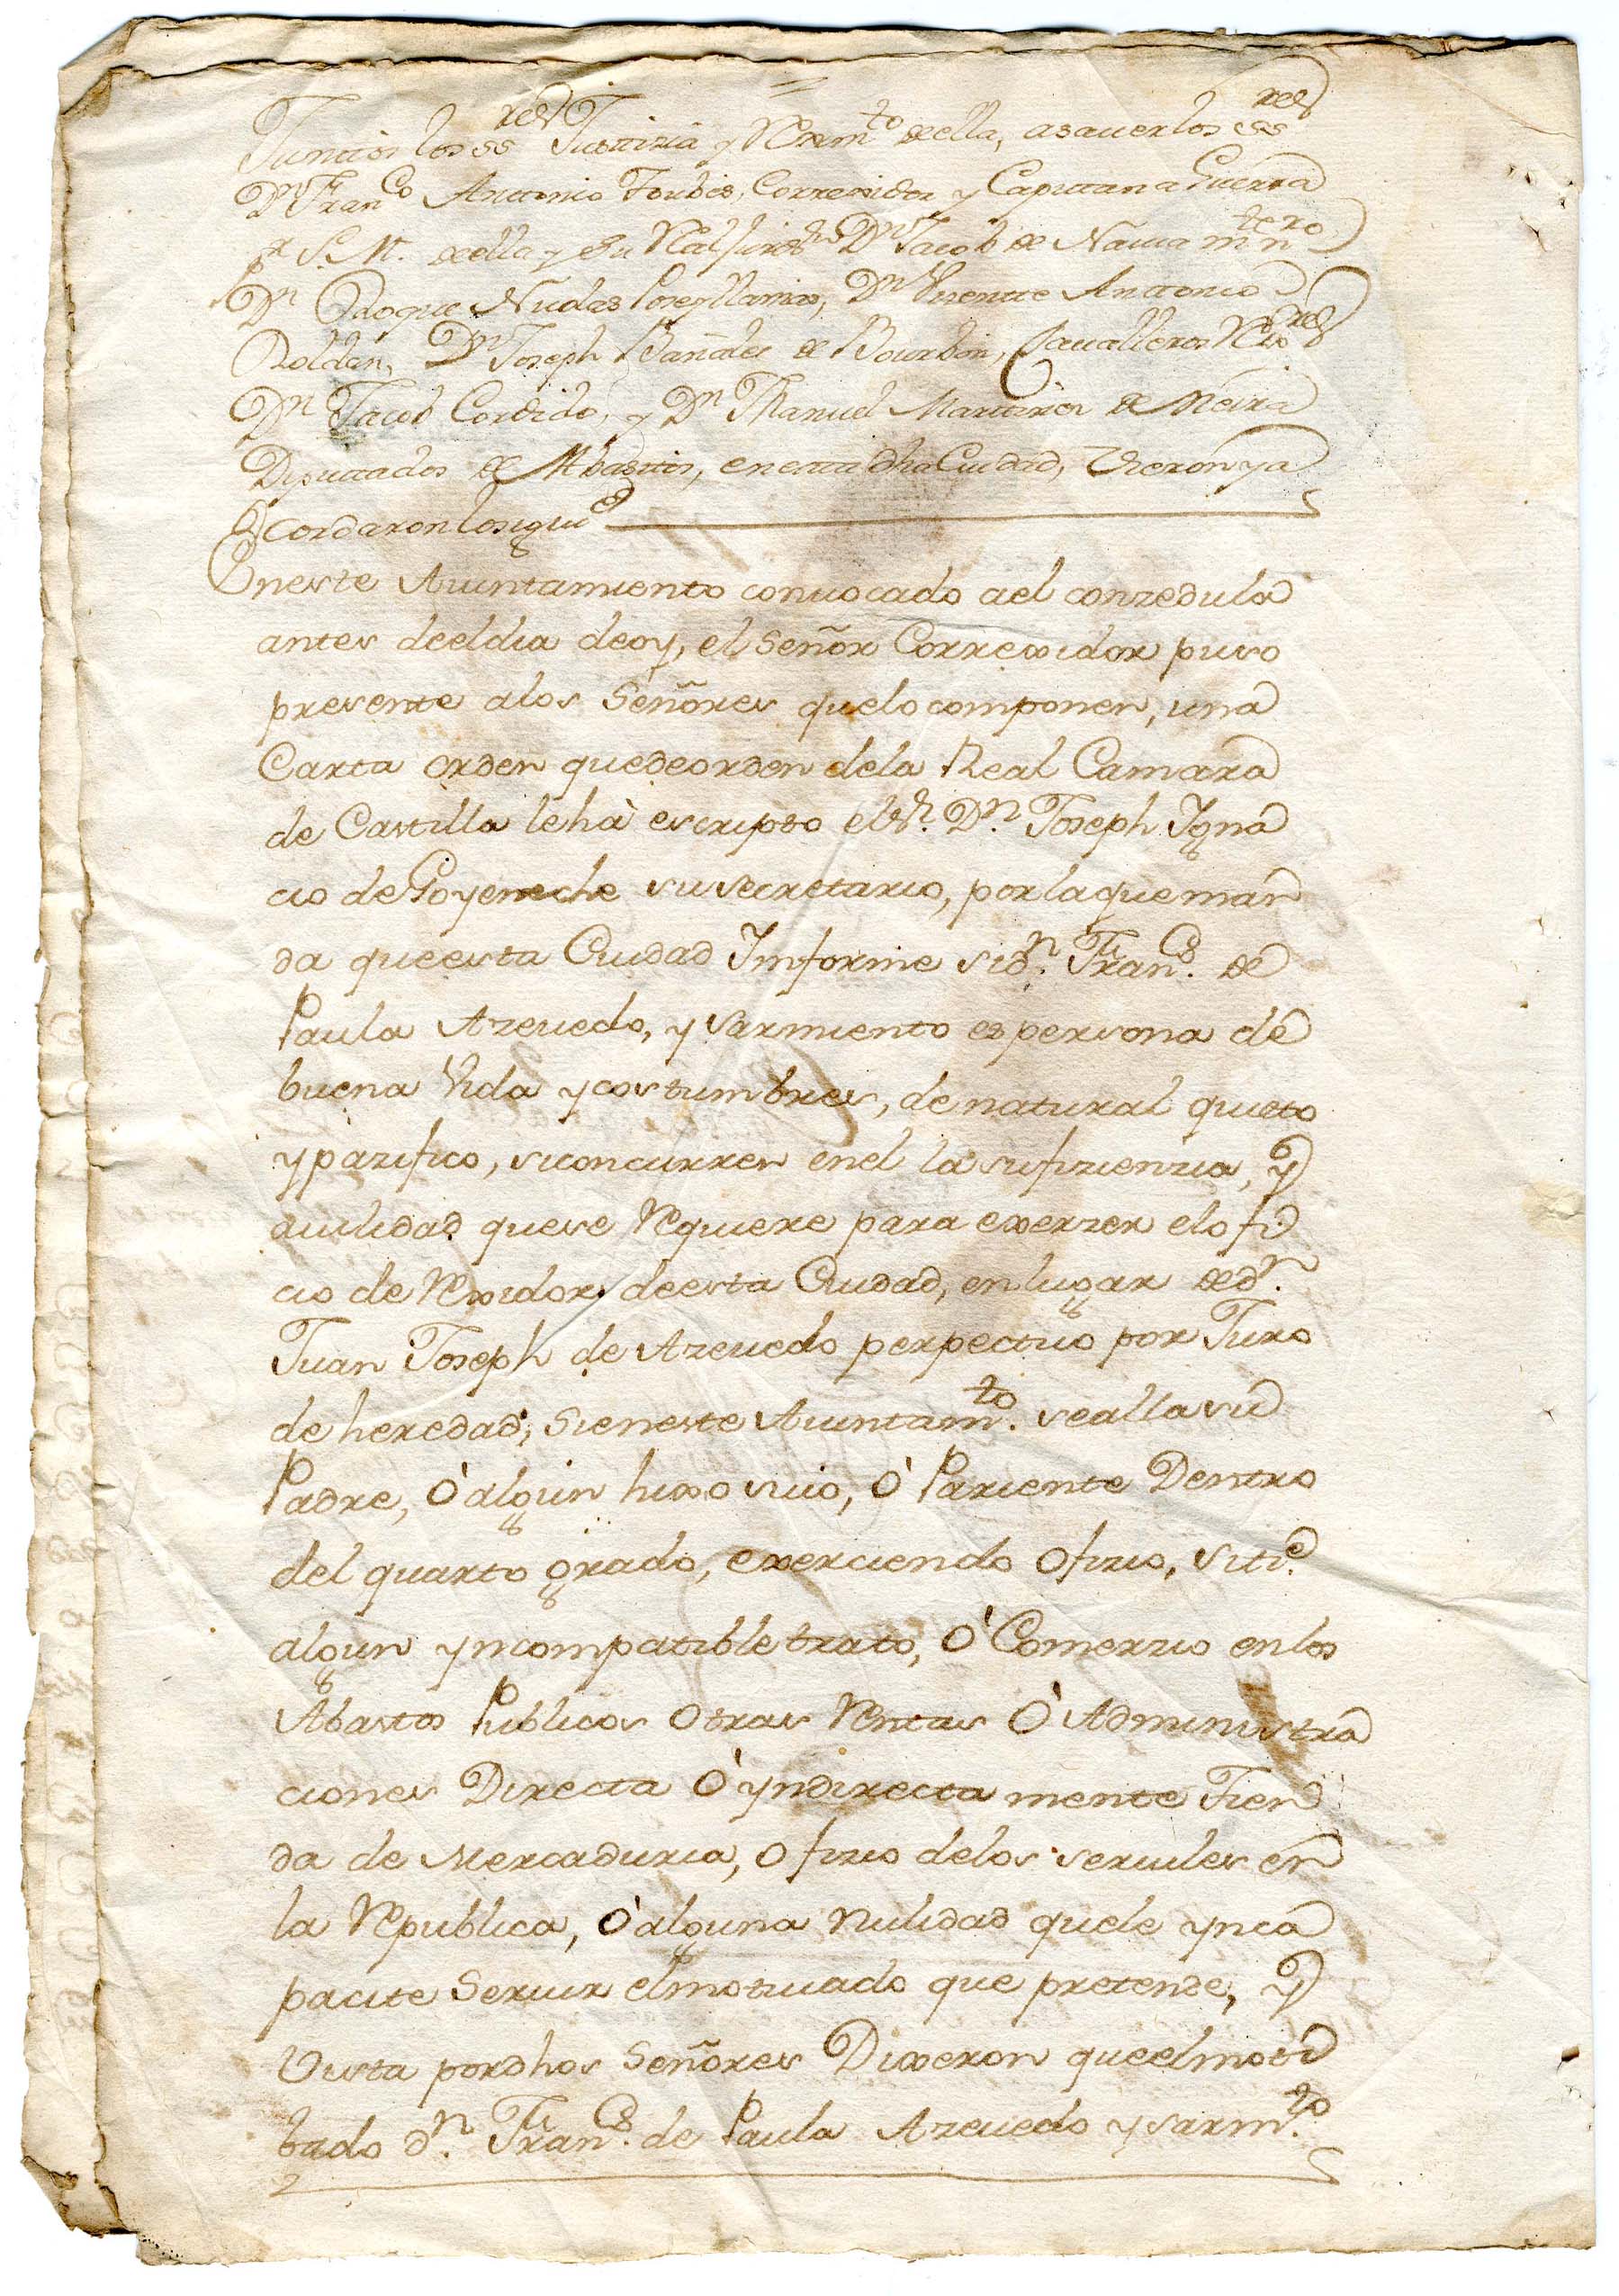 Junttos los ssres Justizia y Rexmto de ella, asauer los ssres
Dn Franco Anttonio Correxidor y Capittan a Guerra
pr S. M. de ella y su Real Jurdon Dn Jacob de
Dn Roque Dn Vizentte Anttonio
Roldan, Dn Joseph Bañales de Bourbon, Caualleros Rexres
Dn Jacob Cordido, y Dn Manuel Marttinez de Neira
Diputtados de Abasttos, en estta dha Ciudad, Vieron y a
cordaron lo siguie
En este Aiuntamiento conuocado a el con zedula
antes de el dia de oy, el Señor Correxidor puso
presente a los Señores que lo componen, una
Carta orden que de orden de la Real Camara
de Castilla le hà escripto el Sr. Dn. Joseph Igna
cio de Goyeneche su secretario, por la que man
da que esta Ciudad Imforme si dn. Franco. de
Paula Azeuedo, y sarmiento es persona de
buena Vida y costumbres, de natural quieto
y pazifico, si concurren en el la sufizienzia, y
auilidad que se Requiere para exerzer el ofi
cio de Rexidor de esta Ciudad, en lugar de dn.
Juan Joseph de Azeuedo perpectuo por Juro
de heredad; Si en este Aiuntamto. se alla su
Padre, ò algun hixo suio, ò Pariente Dentro
del quarto grado, exerciendo ofizio, si tie.
algun yncompatible trato, ò Comerzio en los
Abastos Publicos otras Rentas ò Administra
ciones Directa ò yndirecta mente Tien
da de Mercaduria, ofizio de los seruiles en
la Republica, ò alguna nulidad que le ynca
pacite Seruir el motiuado que pretende, y
Vista por dhos Señores Dixeron que el moti
bado dn. Franco. de Paula Azeuedo y sarmto.